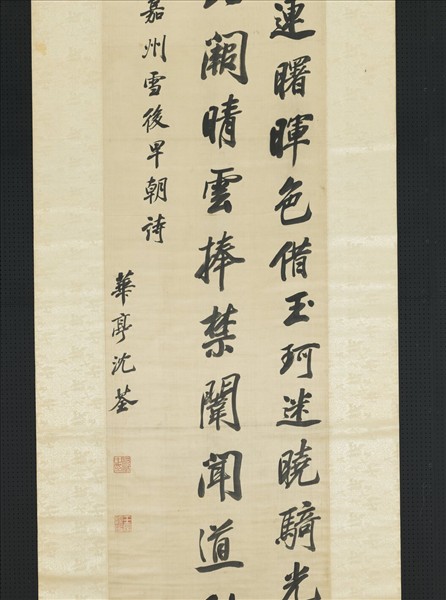 連曙暉色借玉珂迷曉騎光
闕晴雲捧禁闈聞道
嘉州雪後早朝詩
華亭沈荃